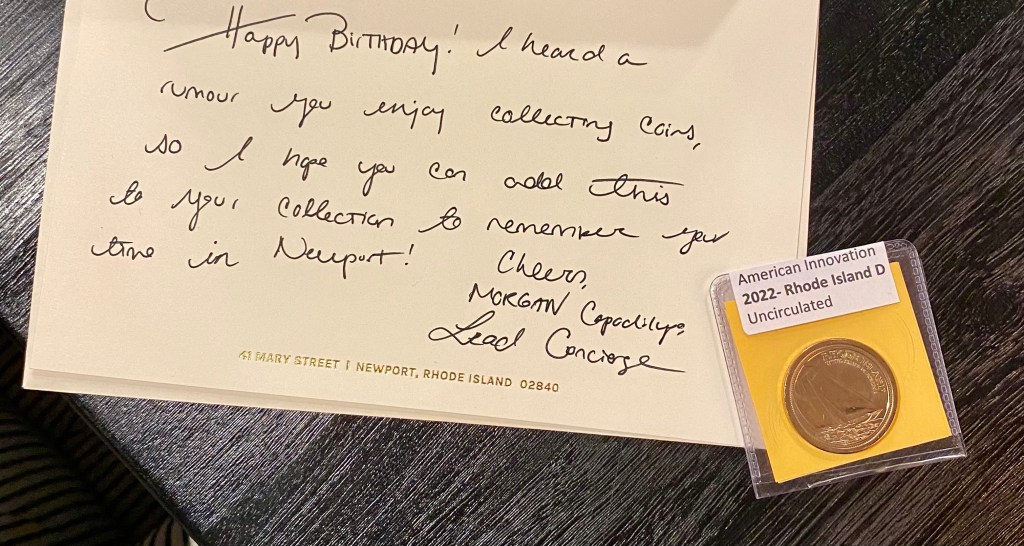 Happy BIRTHDAY! I heard a
rumour you enjoy collecting coins,
so I hope you can add this
to your collection to remember your
time in Newport!
Cheers,
MORGAN
Lead Concierge
41 MARY STREET | NEWPORT, RHODE ISLAND 02840
American Innovation
2022- Rhode Island D
Uncirculated